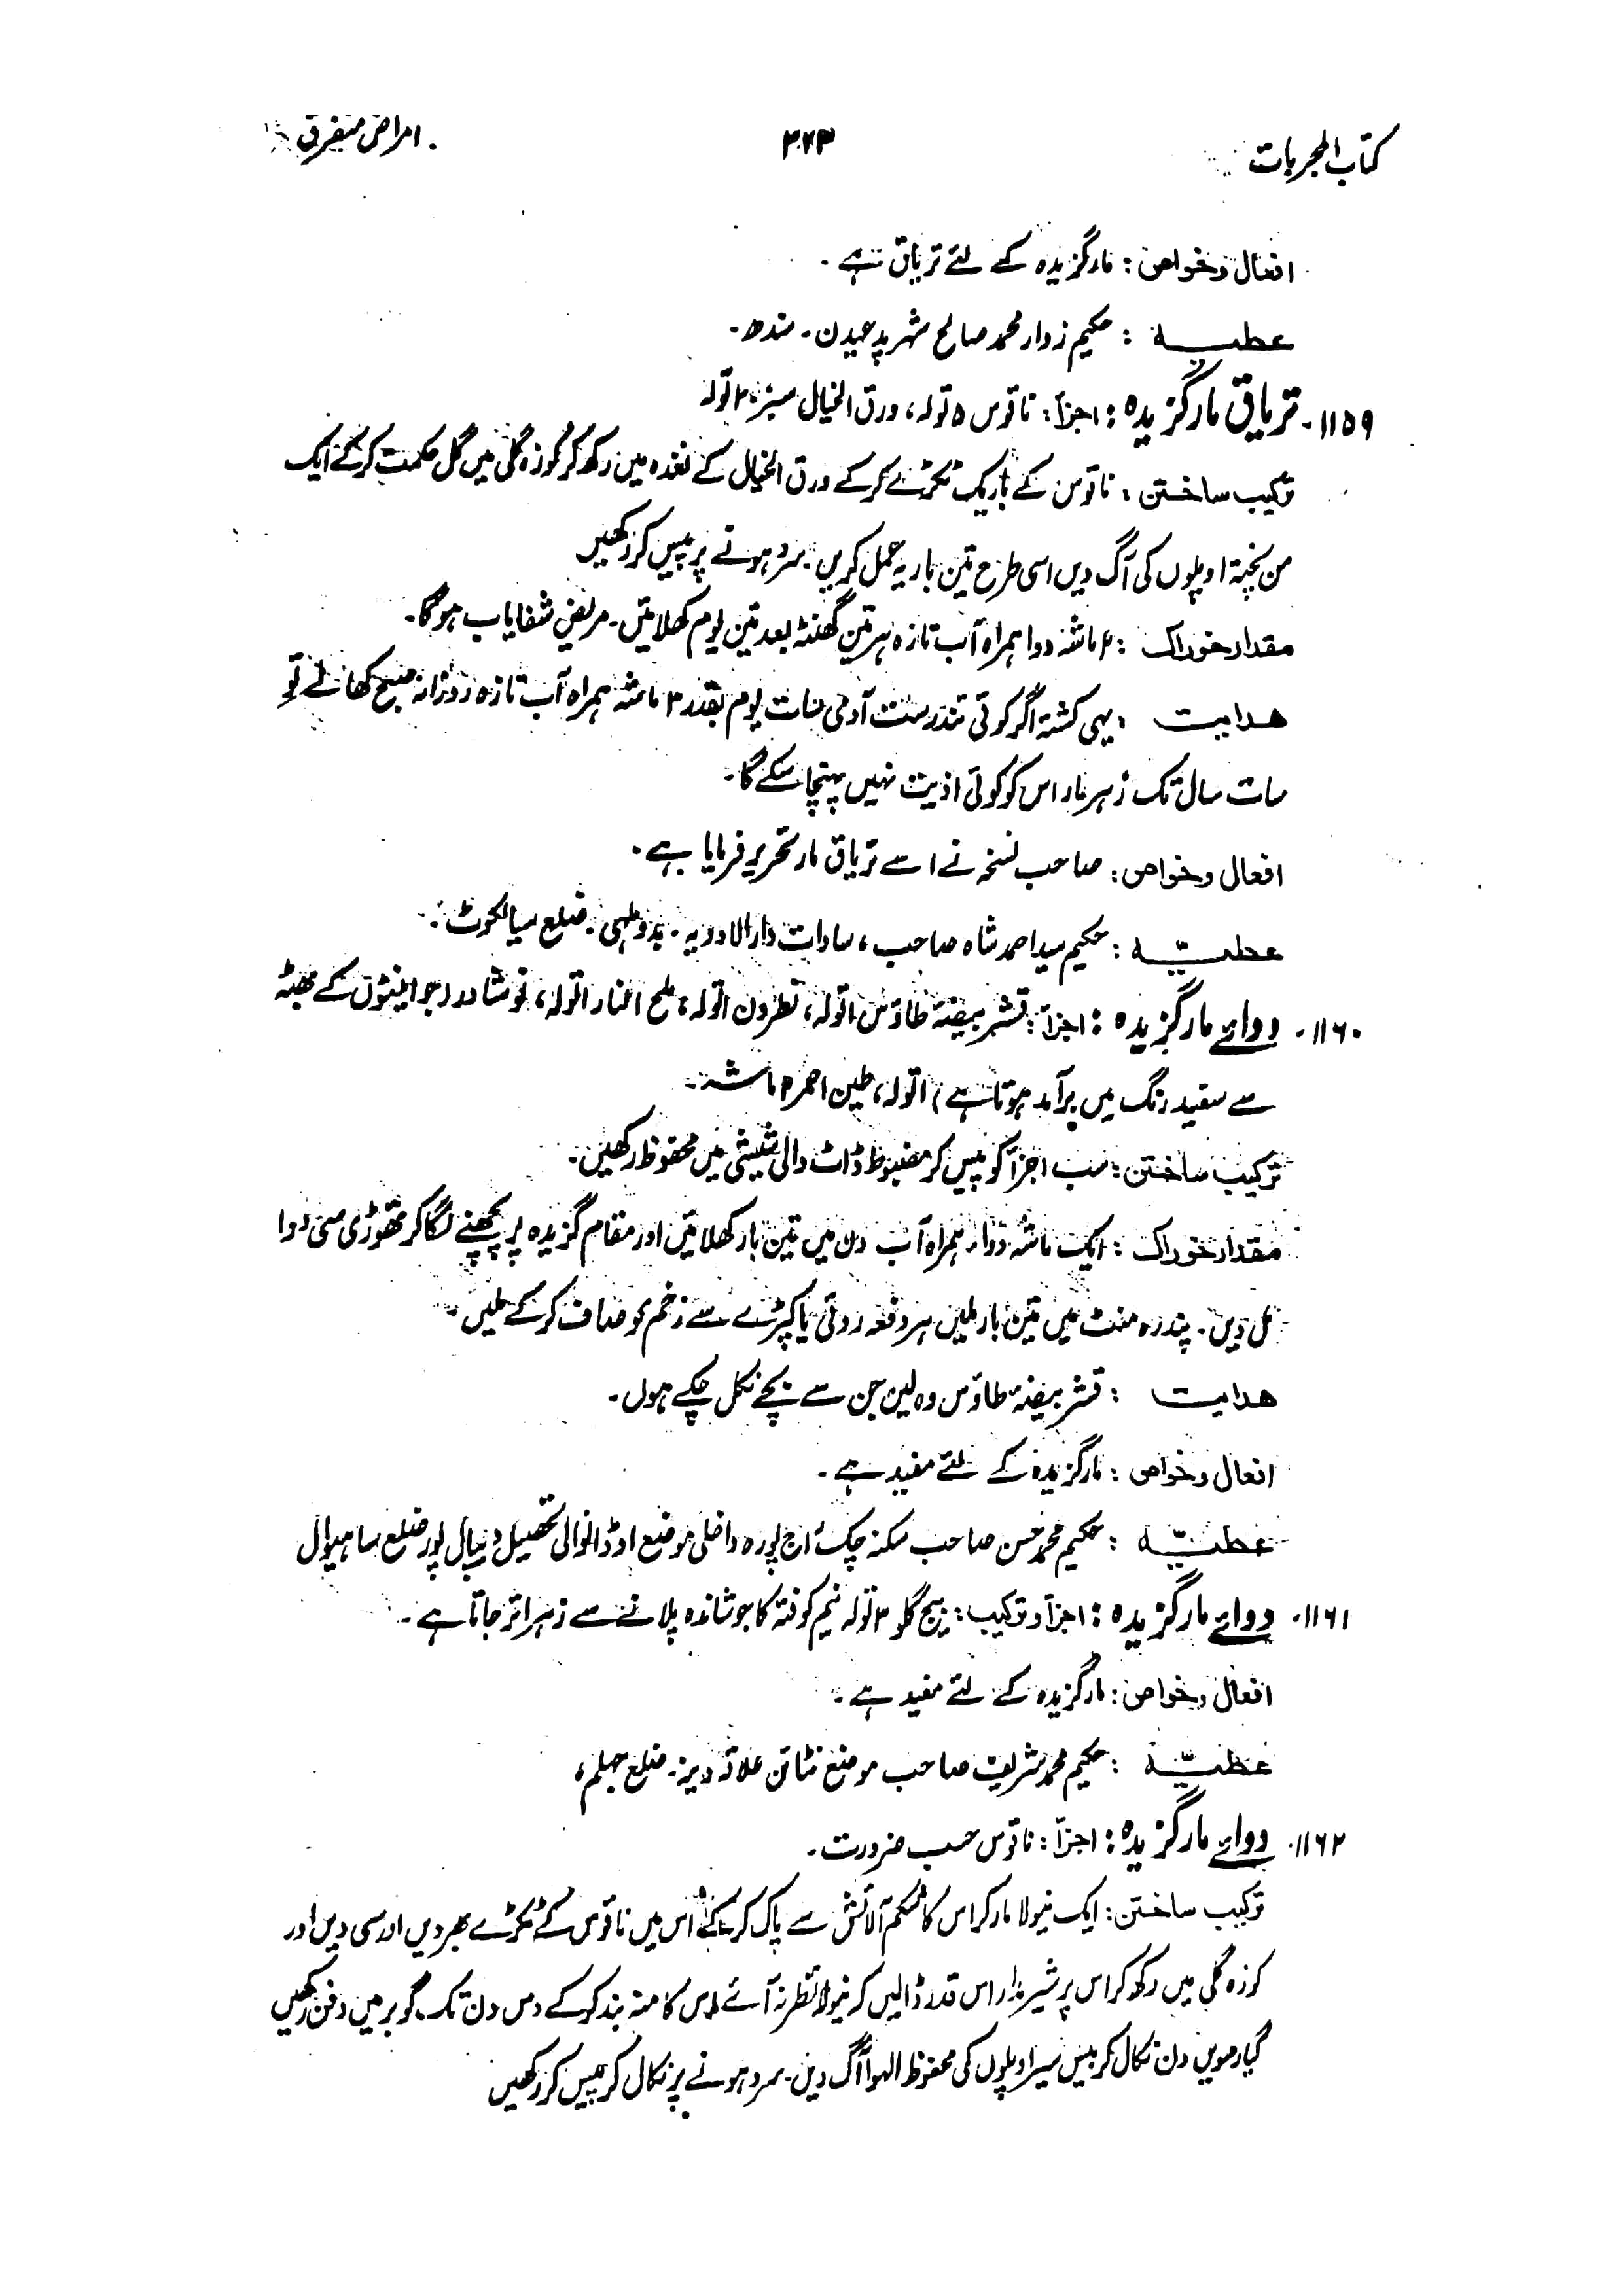 کتاب المجربات ۳۲۳ امراض متفرق
افعال وخواص: مارگزیدہ کے لئے تریاق ہے۔
عطیہ : حکیم زوار محمد صالح شہر پڈعیدن۔ سندھ۔
۱۱۵۹۔ تریاق مارگزیدہ: اجزأ: ناقوس ۵ تولہ، ورق الخیال سبز ۲۰ تولہ
ترکیب ساختن: ناقوس کے باریک ٹکڑے کرکے ورق الخیال کے نغدہ میں رکھ کر کوزہ گلی میں گل حکمت کرکے ایک
من پختہ اوپلوں کی آگ دیں اسی طرح تین بار یہ عمل کریں۔ سرد ہونے پر پیس کر رکھیں
مقدار خوراک : ۶ ماشہ دوا ہمراہ آب تازہ ہر تین گھنٹہ بعد تین یوم کھلائیں۔ مریض شفایاب ہوگا۔
ھدایت : یہی کشتہ اگر کوئی تندرست آدمی سات یوم بقدر ۳ ماشہ ہمراہ آب تازہ روزانہ صبح کھالے تو
سات سال تک زہر مار اس کو کوئی اذیت نہیں پہنچا سکے گا۔
افعال وخواص: صاحب نسخہ نے اسے تریاق مار تحریر فرمایا ہے۔
عطیّہ : حکیم سید احمد شاہ صاحب، سادات دارالادویہ۔ بدوملہی۔ ضلع سیالکوٹ۔
۱۱۶۰۔ دوائے مارگزیدہ: اجزأ: قشر بیضۂ طاؤس ۱ تولہ، نطرون ۱ تولہ، ملح النار ۱ تولہ، نوشادر (جو اینٹوں کے بھٹہ
سے سفید رنگ میں برآمد ہوتا ہے) ۱ تولہ، طین احمر ۳ ماشہ۔
ترکیب ساختن: سب اجزأ کو پیس کر مضبوط ڈاٹ والی شیشی میں محفوظ رکھیں۔
مقدار خوراک : ایک ماشہ دوا، ہمراہ آب دن میں تین بار کھلائیں اور مقام گزیدہ پر پچھنے لگا کر تھوڑی سی دوا
مل دیں۔ پندرہ منٹ میں تین بار ملیں ہر دفعہ روئی یا کپڑے سے زخم کو صاف کرکے ملیں۔
ھدایت : قشر بیضۂ طاؤس وہ لیں جن سے بچے نکل چکے ہوں۔
افعال وخواص : مارگزیدہ کے لئے مفید ہے۔
عطیّہ : حکیم محمد حسن صاحب سکنہ چک آج پورہ داخلی موضع اوڈانوالی تحصیل دیپال پور ضلع ساہیوال
۱۱۶۱۔ دوائے مارگزیدہ: اجزأ و ترکیب: بیخ گلو ۳ تولہ نیم کوفتہ کا جوشاندہ پلانے سے زہر اتر جاتا ہے۔
افعال وخواص: مارگزیدہ کے لئے مفید ہے۔
عطیّہ : حکیم محمد شریف صاحب موضع علاقہ دینہ۔ ضلع جہلم،
۱۱۶۲۔ دوائے مارگزیدہ: اجزأ: ناقوس حسب ضرورت۔
ترکیب ساختن: ایک نیولا مار کر اس کا شکم آلائش سے پاک کرکے اس میں ناقوس کے ٹکڑے بھر دیں اور سی دیں اور
کوزہ گلی میں رکھ کر اس پر شیر مدار اس قدر ڈالیں کہ نیولا نظر نہ آئے اس کا منہ بند کرکے دس دن تک گوبر میں دفن رکھیں
گیارھویں دن نکال کر بیس سیر اوپلوں کی محفوظ الہوا آگ دیں۔ سرد ہونے پر نکال کر پیس کر رکھیں